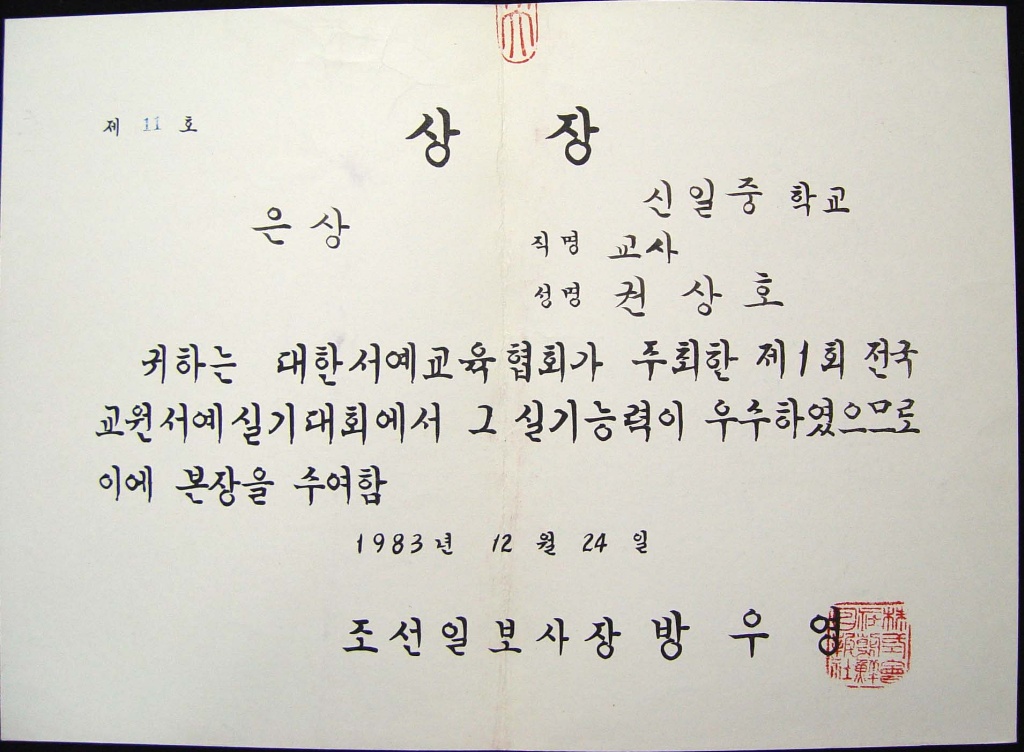 제 11 호
상 장
은상
신일중 학교
직명 교사
성명 권 상 호
귀하는 대한서예교육협회가 주최한 제1회 전국
교원서예실기대회에서 그 실기능력이 우수하였으므로
이에 본장을 수여함
1983년 12 월 24 일
조선일보사장 방 우 영